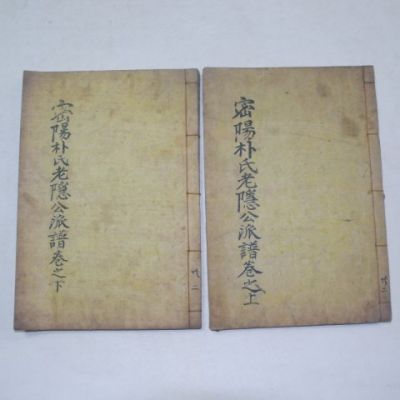 密陽朴氏老隱公派譜卷之上
共二
密陽朴氏老隱公派譜卷之下
共二